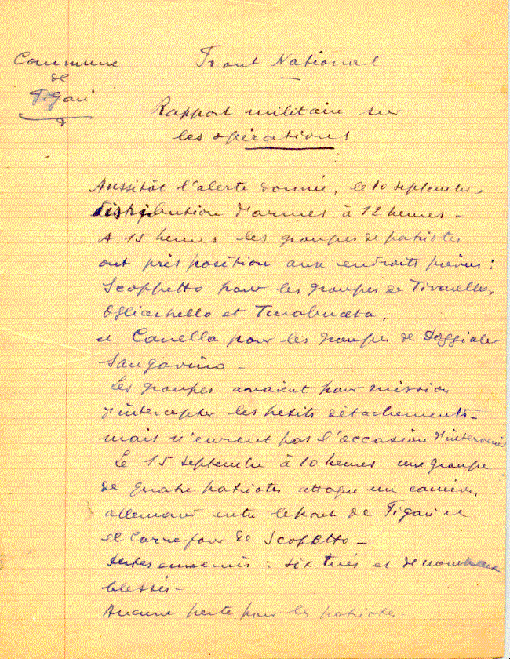 Commune
de
Figari
Front National
Rapport militaire sur
les opérations
Aussitôt l'alerte donnée, le 10 septembre,
distribution d'armes à 12 heures -
A 15 heures les groupes de patriotes
ont pris position aux endroits prévus :
Scoppetto pour les groupes de Tivarello,
Ogliastrello et
et Canella pour les groupes de Poggiale
Sangavino -
Les groupes avaient pour mission
d'intercepter les petits détachements -
mais n'eurent pas l'occasion d'intervenir
Le 15 septembre à 10 heures un groupe
de quatre patriotes attaque un camion
allemand entre le pont de Figari et
le Carrefour de Scopetto -
Pertes ennemis : six tués et de nombreux
blessés -
Aucune perte pour les patriotes